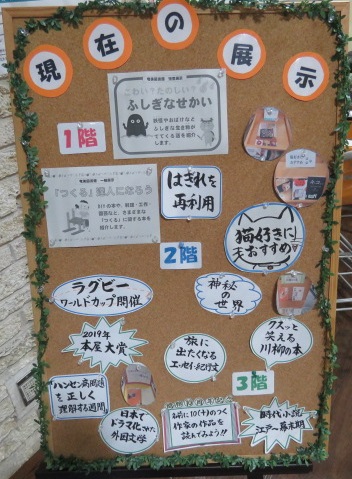 現在の展示
1階
こわい？たのしい？
ふしぎなせかい
妖怪やおばけなど
ふしぎな生き物が
でてくる話を紹介
します。
「つくる」達人になろう
はぎれを
再利用
2階
猫好きに
大おすすめ
ラグビー
ワールドカップ開催
神秘
の
世界
2019年
本屋大賞
旅に
出たくなる
エッセイ・紀行文
クスッと
笑える
川柳の本
3階
ハンセン病問題
を正しく
理解する週間
日本で
ドラマ化された
外国文学
名前に10(十)のつく
作家の作品
を読んでみよう!!
時代小説
江戸〜幕末期